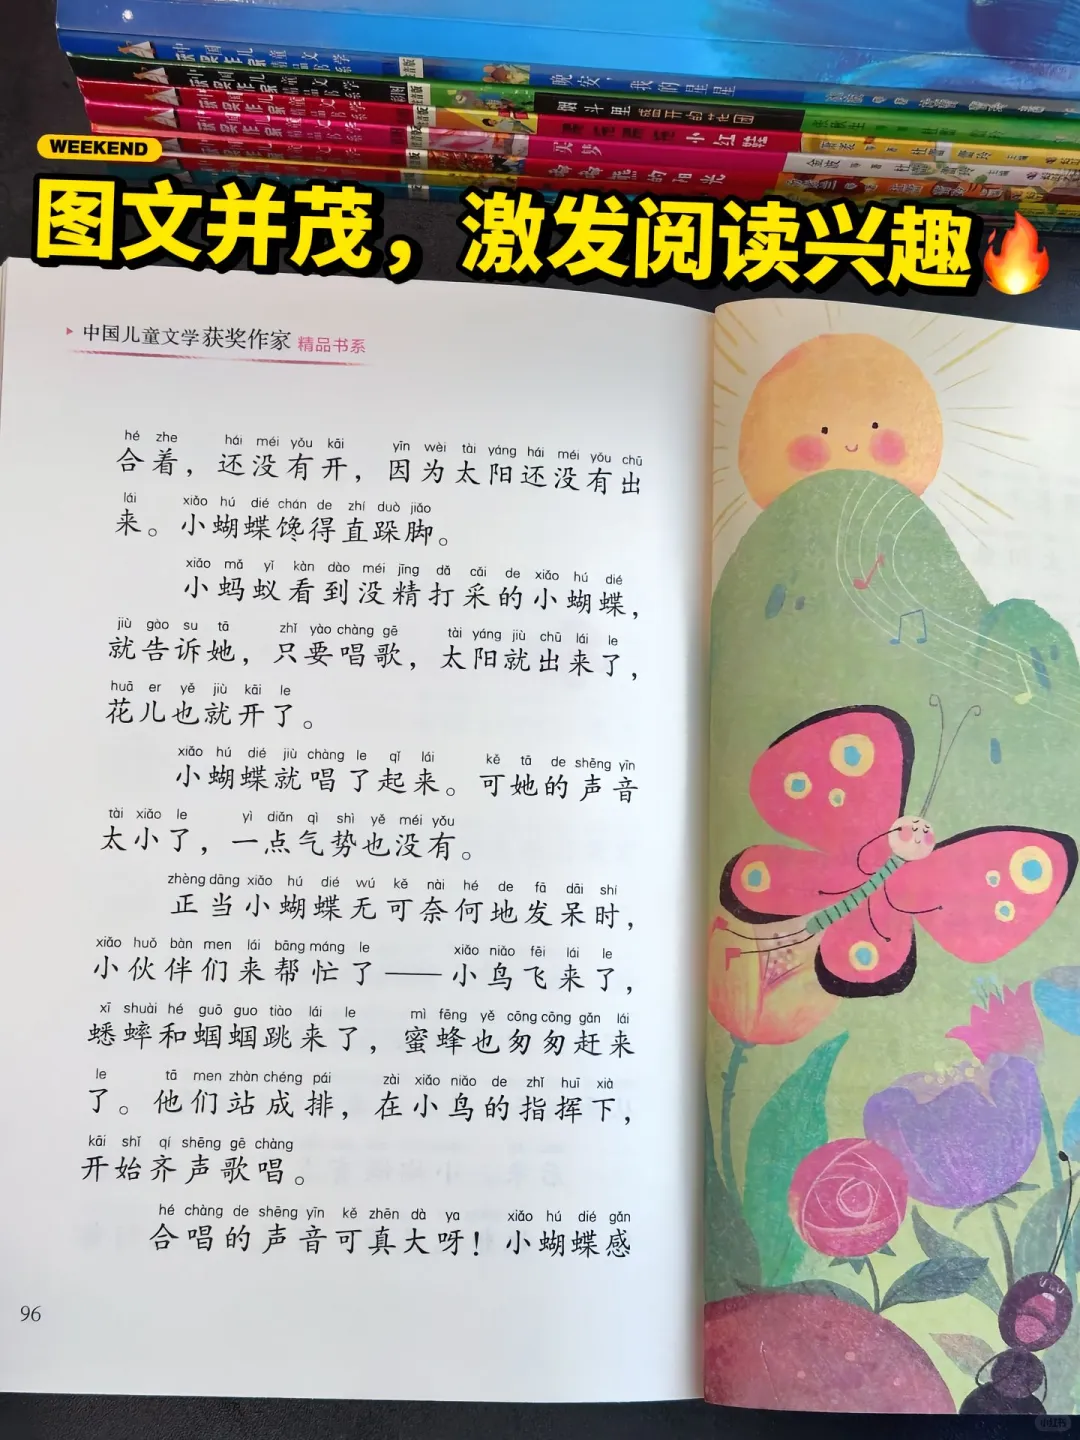 晚安，我的星星
小红鞋
买梦
的阳光
WEEKEND
图文并茂，激发阅读兴趣🔥
中国儿童文学获奖作家 精品书系
hé zhe hái méi yǒu kāi yīn wèi tài yáng hái méi yǒu chū
合着，还没有开，因为太阳还没有出
lái xiǎo hú dié chán de zhí duò jiǎo
来。小蝴蝶馋得直跺脚。
xiǎo mǎ yǐ kàn dào méi jīng dǎ cǎi de xiǎo hú dié
小蚂蚁看到没精打采的小蝴蝶，
jiù gào su tā zhǐ yào chàng gē tài yáng jiù chū lái le
就告诉她，只要唱歌，太阳就出来了，
huā er yě jiù kāi le
花儿也就开了。
xiǎo hú dié jiù chàng le qǐ lái kě tā de shēng yīn
小蝴蝶就唱了起来。可她的声音
tài xiǎo le yì diǎn qì shì yě méi yǒu
太小了，一点气势也没有。
zhèng dāng xiǎo hú dié wú kě nài hé de fā dāi shí
正当小蝴蝶无可奈何地发呆时，
xiǎo huǒ bàn men lái bāng máng le xiǎo niǎo fēi lái le
小伙伴们来帮忙了——小鸟飞来了，
xī shuài hé guō guo tiào lái le mì fēng yě cōng cōng gǎn lái
蟋蟀和蝈蝈跳来了，蜜蜂也匆匆赶来
le tā men zhàn chéng pái zài xiǎo niǎo de zhǐ huī xià
了。他们站成排，在小鸟的指挥下，
kāi shǐ qí shēng gē chàng
开始齐声歌唱。
hé chàng de shēng yīn kě zhēn dà ya xiǎo hú dié gǎn
合唱的声音可真大呀！小蝴蝶感
96
小红书